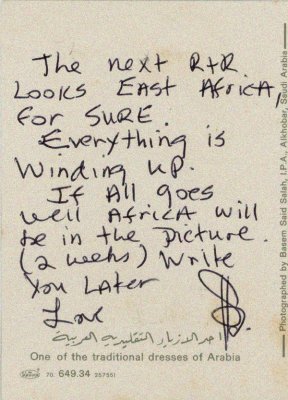 The next R+R
Looks East Africa,
for SURE.
Everything is
Winding up.
If All goes
well Africa will
be in the picture.
(2 weeks) Write
You Later
Love
احد الازياء التقليديه العربية
One of the traditional dresses of Arabia
70. 649.34 25755\
Photographed by Basem Said Salah, I.P.A., Alkhobar, Saudi Arabia